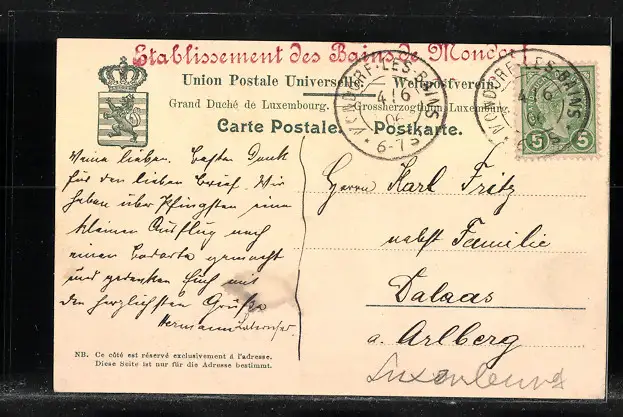 Etablissement des Bains de Mondorf
Union Postale Universelle. Weltpostverein.
Grand Duché de Luxembourg. Grossherzogthum Luxemburg.
Carte Postale. Postkarte.
MONDORF-LES-BAINS
4 6
06
6-7 S
MONDORF-LES-BAINS
4 6
5 5
Meine Lieben. Besten Dank
für den lieben Brief. Wir
haben über Pfingsten eine
kleinen Ausflug nach
einen Badorte gemacht
und gedenken Euch mit
den herzlichsten Grüße
Hermann
Herrn Karl Fritz
nebst Familie
Dalaas
a. Arlberg
Luxemburg
NB. Ce côté est réservé exclusivement à l'adresse.
Diese Seite ist nur für die Adresse bestimmt.